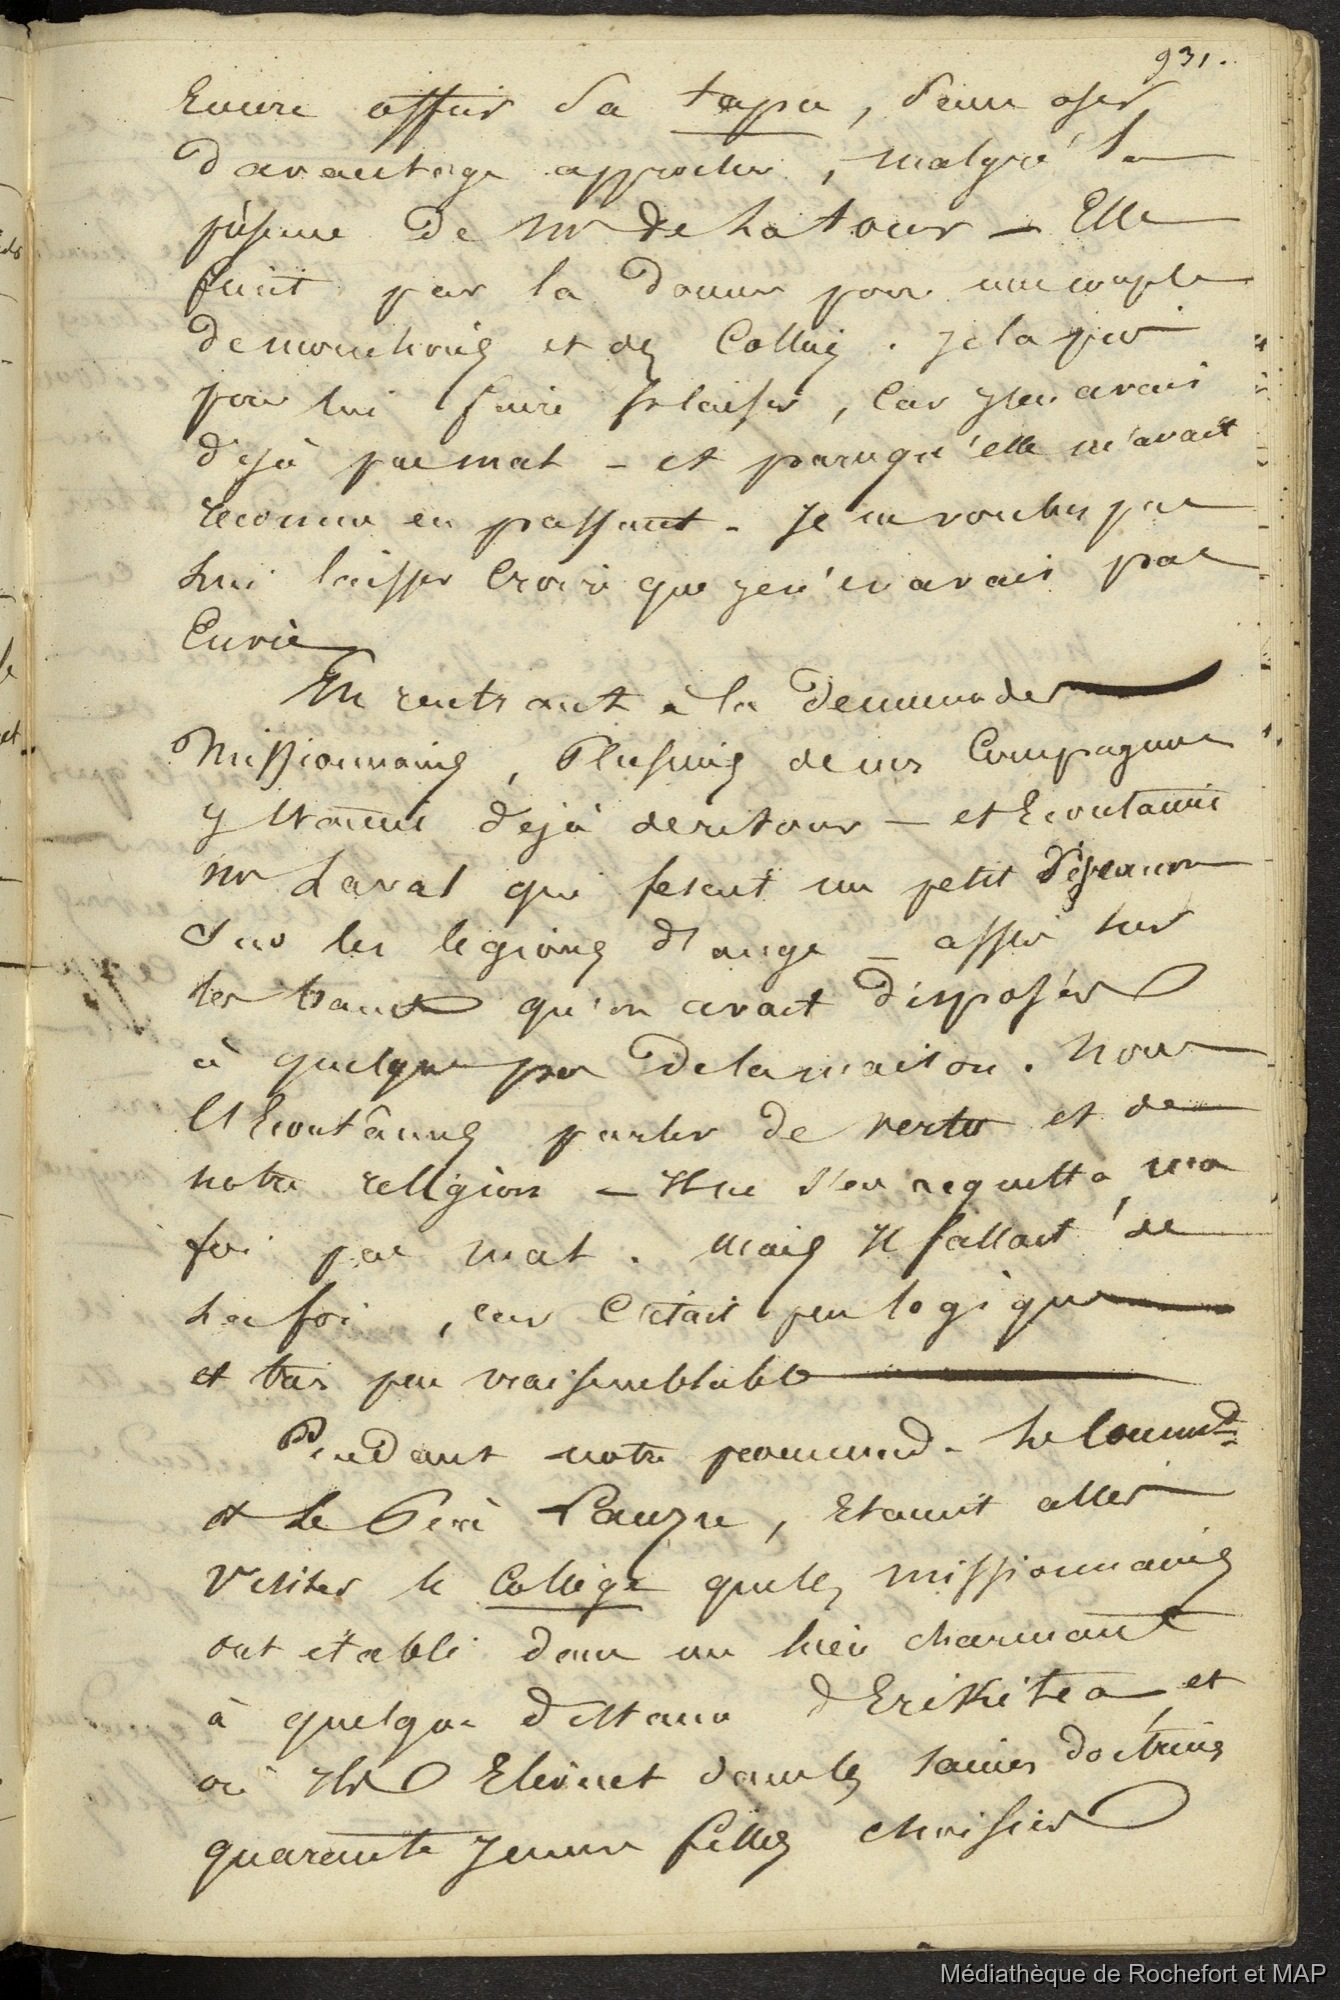 931.
Encore offrir sa tapa, sans oser
d'avantage approcher, malgré la
présence de Mr de Latour — Elle
finit par la donner pour une couple
de mouchoirs et des Colliers. Je la pris
pour lui faire plaisir, car J'en avais
déjà pas mal — et parcequ'elle m'avait
reconnu en passant. Je ne voulus pas
lui laisser croire que je n'en avais pas
Envie
En rentrant à la demeure des
Missionnaires, Plusieurs de mes Compagnons
y Etaient déjà de retour — et Ecoutaient
Mr Laval qui fesait un petit
sur les légions d'ange — assis sur
les bancs qu'on avait disposés
à quelques pas de la maison. Nous
l'Ecoutâmes parler de vertu et de
notre religion — Il ne s'en acquitta, ma
foi pas mal. Mais Il fallait de
la foi, car C'était peu logique
et très peu vraisemblable
Pendant notre promenade. le Command.t
et le Père, Etaient allés
Visiter le Collège que les missionnaires
ont établi dans un lieu charmant
à quelque distance d'Erikitea, et
où Ils Elèvent dans les saines doctrines
quarante Jeunes filles choisies
Médiathèque de Rochefort et MAP